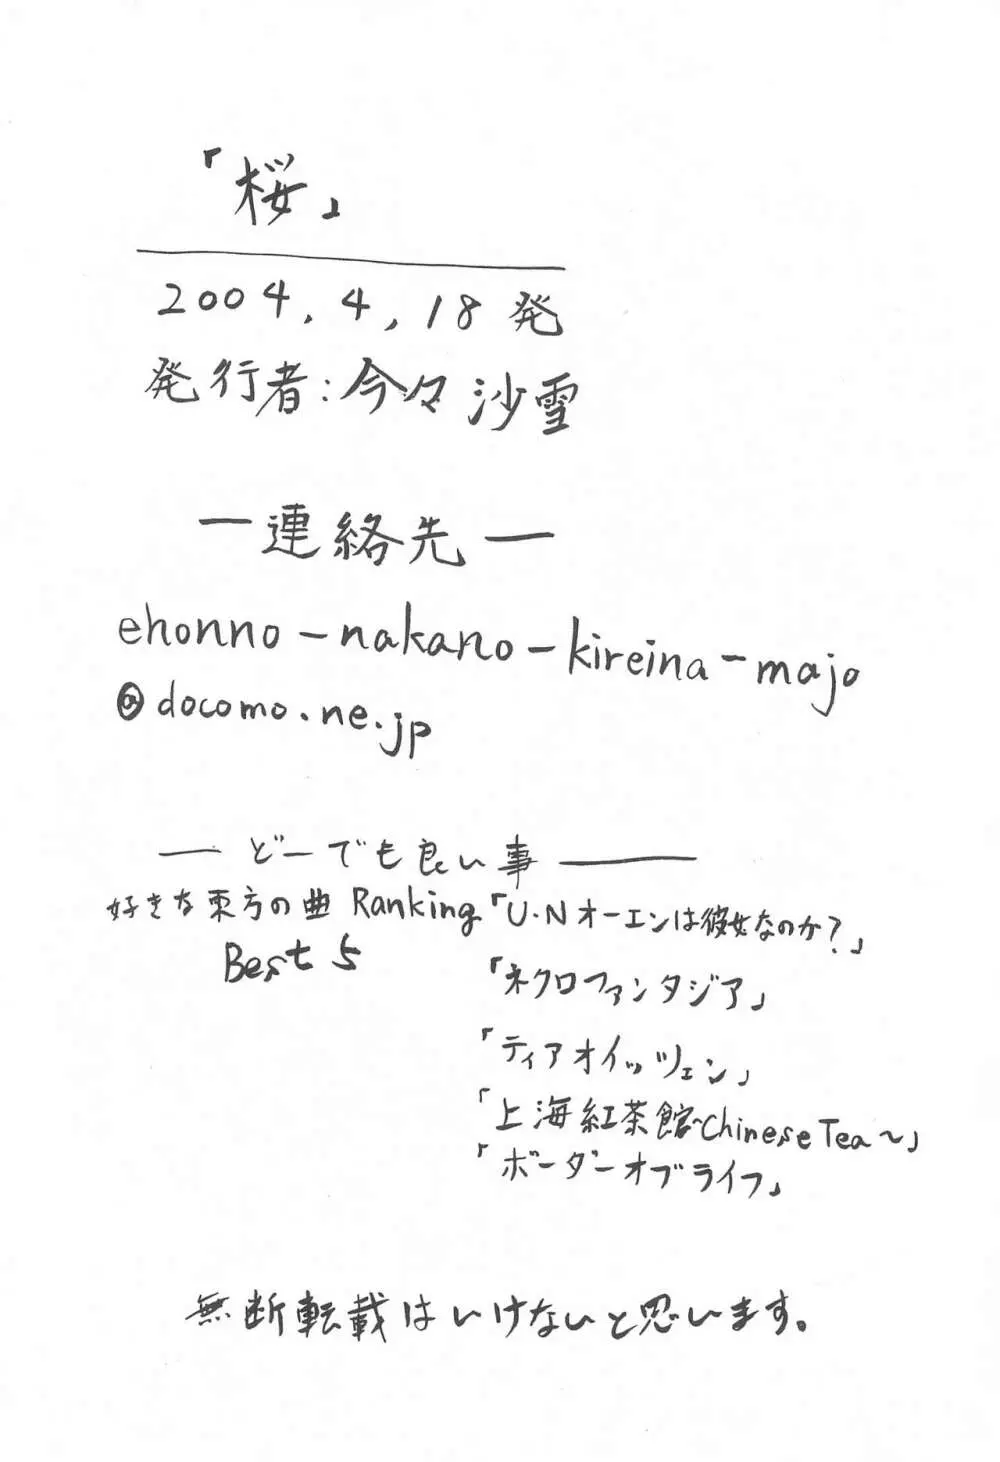 「桜」
2004,4,18発
発行者:今々沙雪
ー連絡先ー
ehonno-nakano-kireina-majo
@docomo.ne.jp
── どーでも良い事 ───
好きな東方の曲 Ranking「U・Nオーエンは彼女なのか?」
Best 5
「ネクロファンタジア」
「ティアオイッツェン」
「上海紅茶館~Chinese Tea~」
「ボーダーオブライフ」
無断転載はいけないと思います。